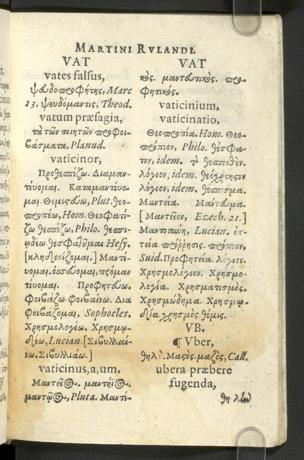 MARTINI RVLANDI.
VAT
vates falsus,
ψευδοπροφήτης, Marc
13. ψευδόμαντις, Theod.
vatum præsagia,
τὰ τῶν ποιητῶν προφοι-
βάσματα, Planud.
vaticinor,
Προθεσπίζω. Διαμαν-
τεύομαι. Καταμαντεύο-
μαι. Θεμιστεύω, Plut. θεο-
προπέω, Hom. Θεοφατί-
ζω θεσπίζω, Philo. θεσπι-
ῳδέω Hesy.
[κληδονίζομαι.] Μαντεύ-
ομαι. προμαν-
τεύομαι. Προφητεύω.
Φοιβάζω φοιβαίνω. Δια
φοιβάζω, Sophocles.
Χρησμολογέω. Χρησμῳ-
δέω, Lucian [Σιβυλλαί-
νω. Σιβυλλιάω.]
vaticinus, a, um,
Μαντεῖος. μαντικός.
μαντῷος, Plut. Μαντι-
VAT
κός. μαντευτικός. προ-
φητικός.
vaticinium,
vaticinatio,
Θεοπροπία, Hom. Θεο-
πρόπιον, Philo. θέσφα-
τον, idem. τὸ θεσπισθὲν
λόγιον, idem. θεόχρηστον
λόγιον, idem. θέσπισμα.
Μαντεία. Μάντευμα.
[Μαντεῖον, Ezech. 21.]
Μαντοσύνη, Lucian.
Suid. Προφητεία. λόγιον.
Χρησμολόγιον. Χρησμο-
λογία. Χρηματισμός.
Χρησμῴδημα. Χρησμῳ-
δία, χρησμὸς θέμις.
VB.
¶ Vber,
θηλή. Μαστός. μαζός, Call.
ubera præbere
fugenda,